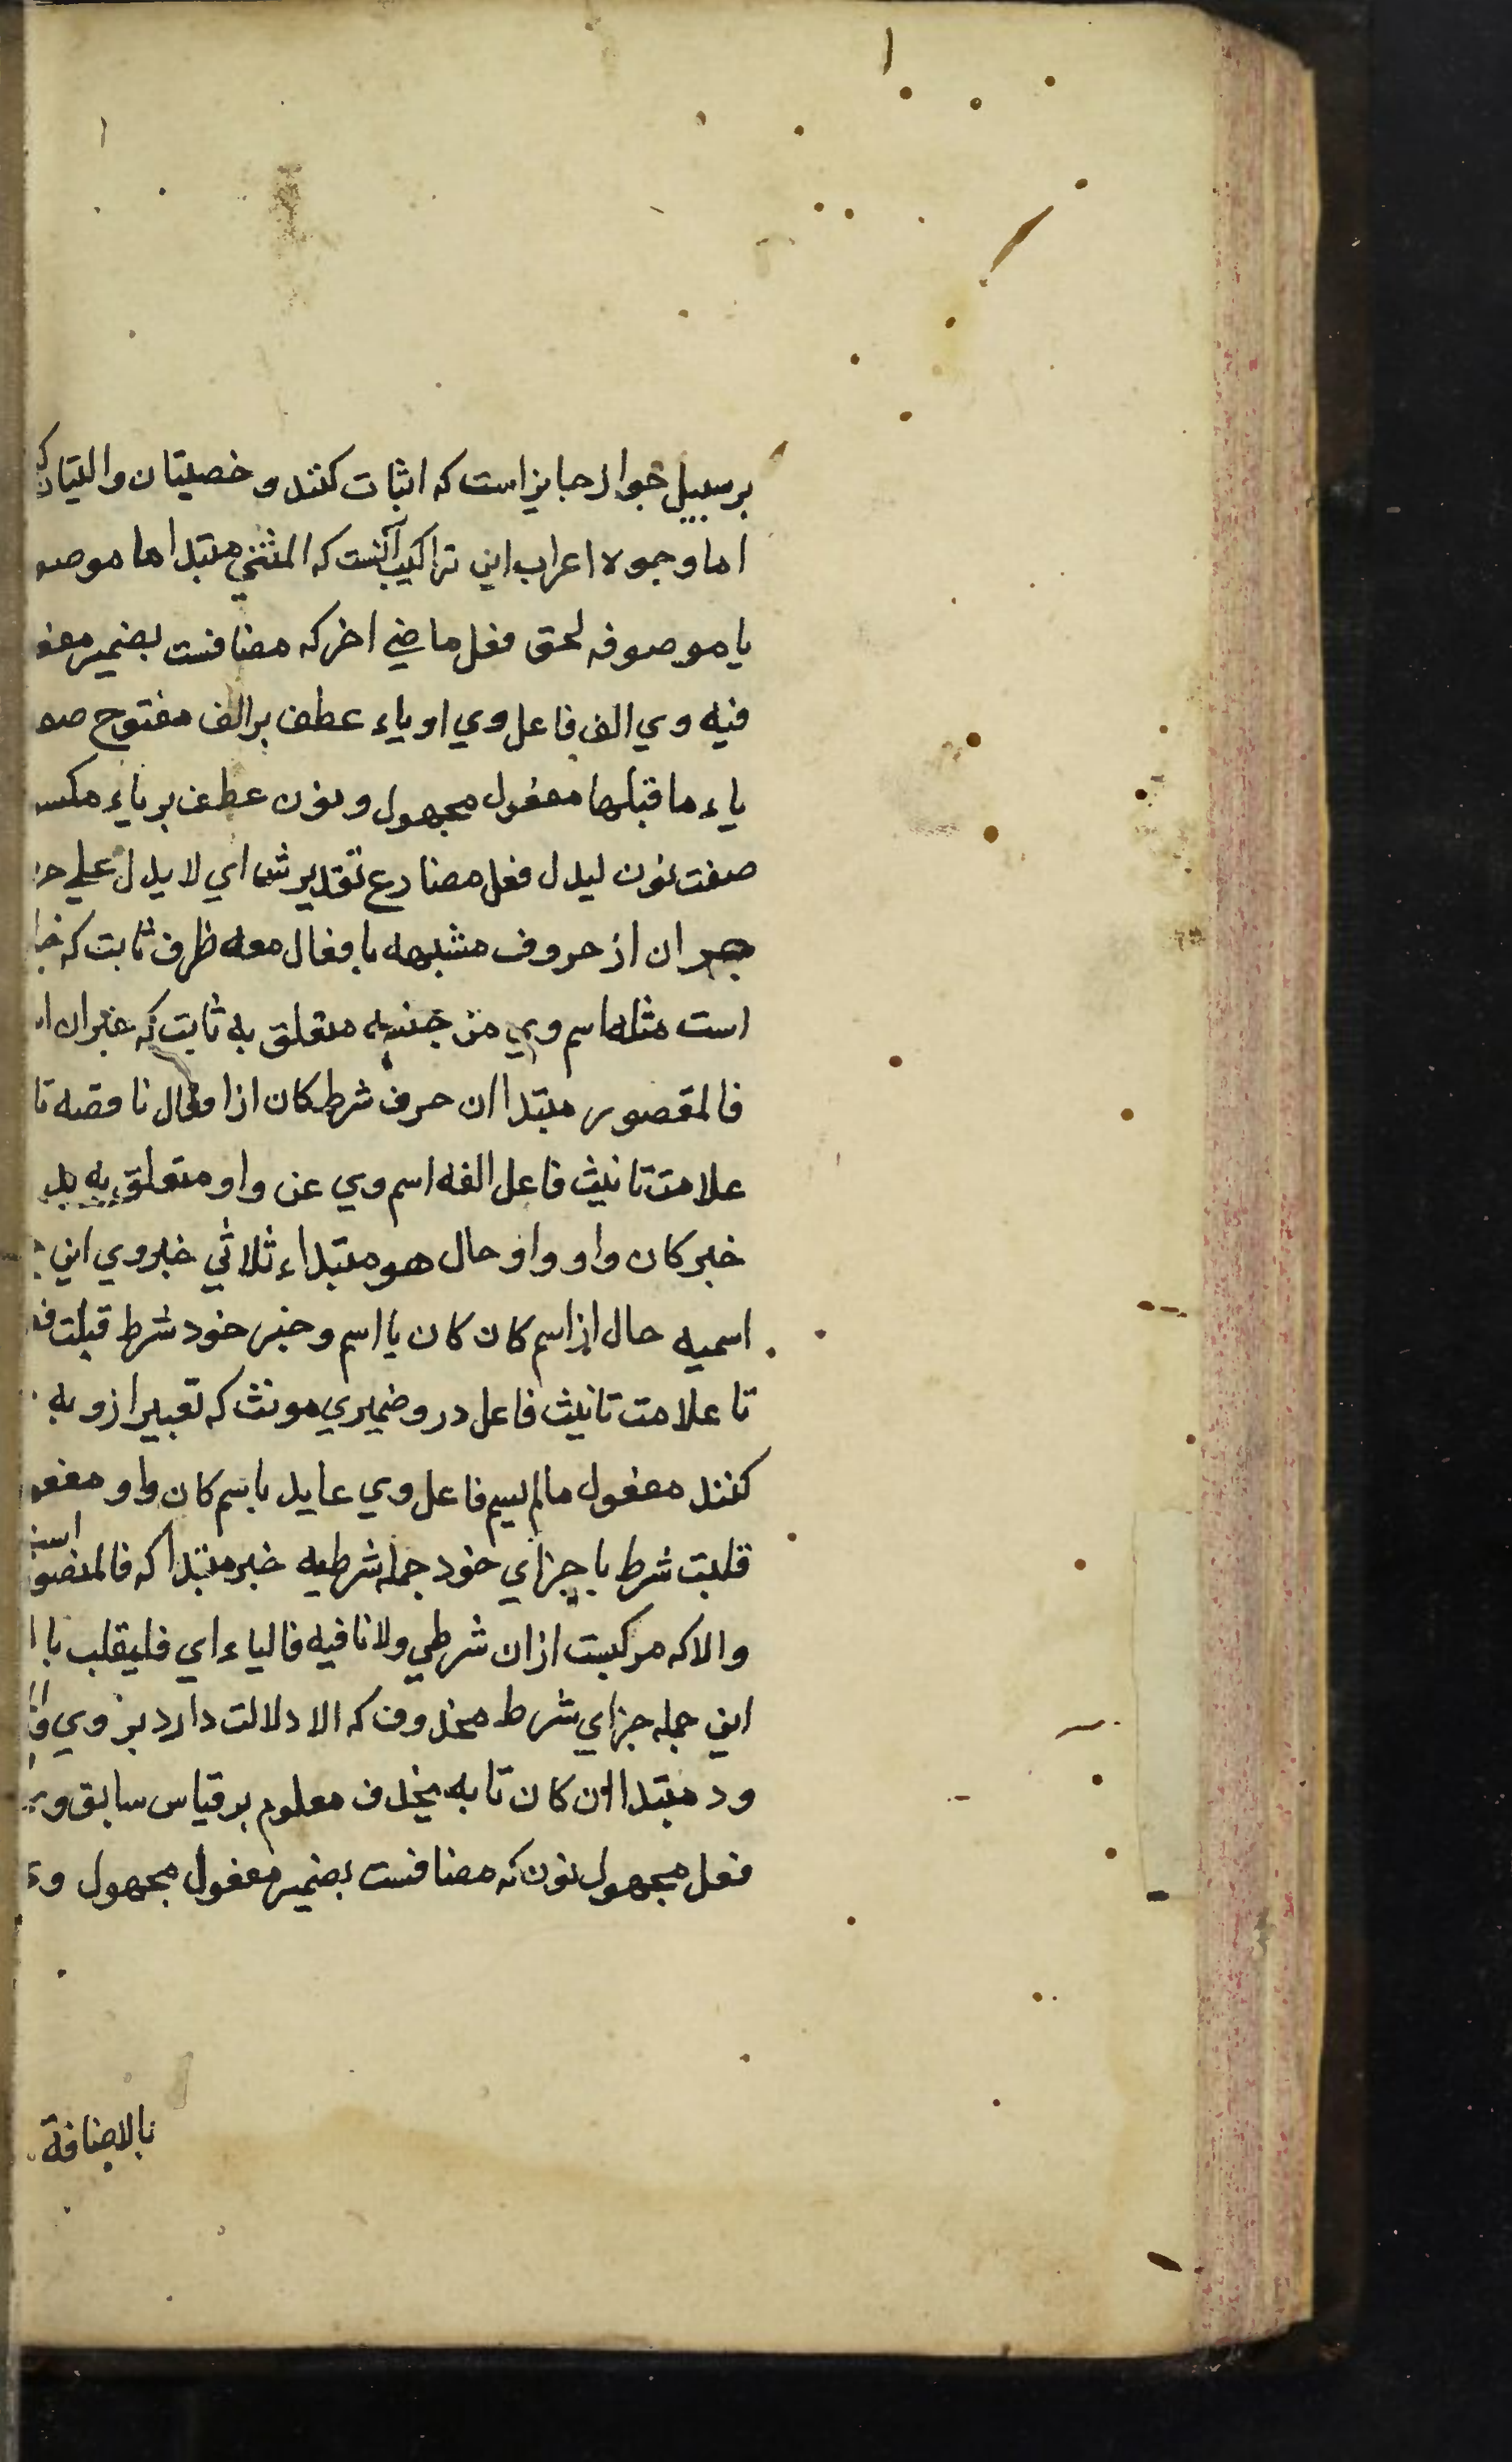 بر سبیل جواز جایز است که اثبات کنند و خصیتان والیتان
اما وجوه اعراب این تراکیب آنست که المثنی مبتدا ما موصو
یا موصوفه لحق فعل ماضی اخر که مضافست بضمیر مفعو
فیه وی الف فاعل وی او یاء عطف بر الف مفتوح صو
یاء ما قبلها مفعول مجهول و نون عطف بر یاء مکسو
صفت نون لیدل فعل مضارع تقدیرش ای لا یدل علی
ان از حروف مشبهه بافعال معه ظرف ثابت که
است مثله اسم وی من جنسه متعلق به ثابت که خبر ان
فالمقصور مبتدا ان حرف شرط کان از افعال ناقصه تا
علامت تانیث فاعل الفه اسم وی عن واو متعلق به
خبر کان واو واو حال هو مبتداء ثلاثی خبر وی این
اسمیه حال از اسم کان کان با اسم و خبر خود شرط قبلت
تا علامت تانیث فاعل درو ضمیری مونث که تعبیر ازو به
کنند مفعول مالم یسم فاعل وی عاید باسم کان واو مفعو
قلبت شرط با جزای خود جمله شرطیه خبر مبتدا که فالمقصو است
والا که مرکبست از ان شرطی ولا نافیه فالیاء ای فلیقلب با
این جمله جزای شرط محذوف که الا دلالت دارد بر وی
ود مبتدا ان کان تا به یحذف معلوم بر قیاس سابق و
فعل مجهول نون که مضافست بضمیر مفعول مجهول وی
بالاضافة